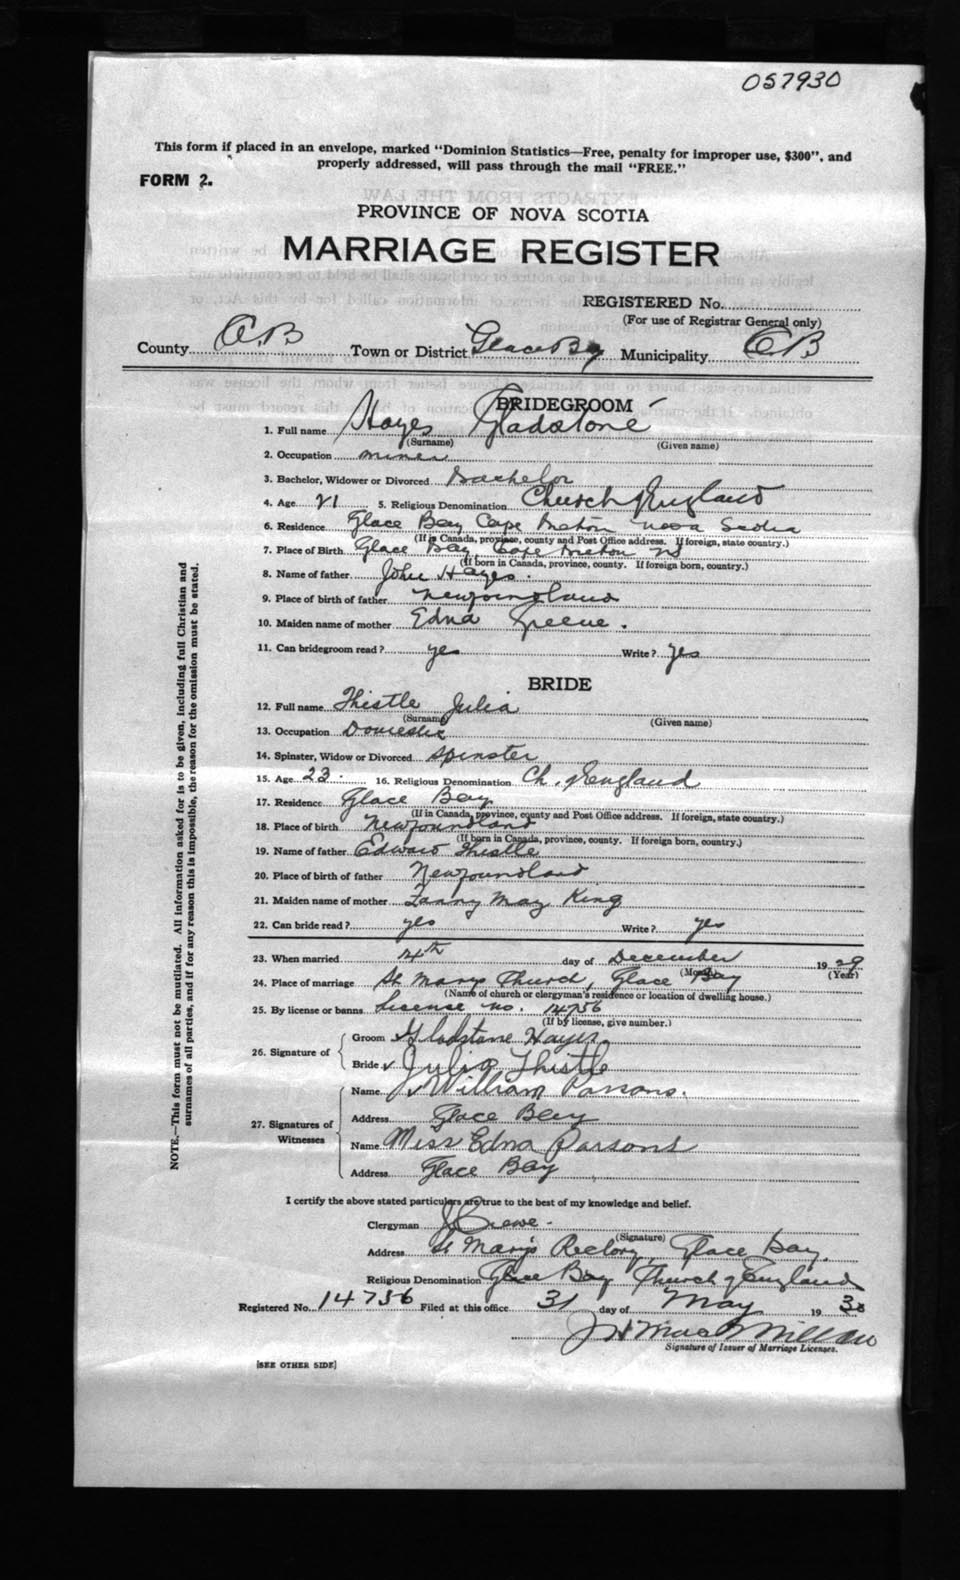 057930
This form if placed in an envelope, marked "Dominion Statistics—Free, penalty for improper use, $300", and
properly addressed, will pass through the mail "FREE."
FORM 2.
PROVINCE OF NOVA SCOTIA
MARRIAGE REGISTER
REGISTERED No.
(For use of Registrar General only)
County C.B Town or District Glace Bay Municipality C B
BRIDEGROOM
1. Full name Hayes Gladstone
(Surname) (Given name)
2. Occupation miner
3. Bachelor, Widower or Divorced Bachelor
4. Age 21 5. Religious Denomination Church of England
6. Residence Glace Bay Cape Breton Nova Scotia
(If in Canada, province, county and Post Office address. If foreign, state country.)
7. Place of Birth Glace Bay, Cape Breton NS
(If born in Canada, province, county. If foreign born, country.)
8. Name of father John Hayes.
9. Place of birth of father Newfoundland
10. Maiden name of mother Edna Greene.
11. Can bridegroom read? yes Write? yes
BRIDE
12. Full name Thistle Julia
(Surname) (Given name)
13. Occupation Domestic
14. Spinster, Widow or Divorced Spinster
15. Age 23. 16. Religious Denomination Ch. of England
17. Residence Glace Bay
(If in Canada, province, county and Post Office address. If foreign, state country.)
18. Place of birth Newfoundland
(If born in Canada, province, county. If foreign born, country.)
19. Name of father Edward Thistle
20. Place of birth of father Newfoundland
21. Maiden name of mother Fanny May King
22. Can bride read? yes Write? yes
23. When married 4th day of December 1929
(Month) (Year)
24. Place of marriage St Marys Church, Glace Bay
(Name of church or clergyman's residence or location of dwelling house.)
25. By license or banns License no. 14756
(If by license, give number.)
26. Signature of
Groom Gladstone Hayes
Bride Julia Thistle
27. Signatures of Witnesses
Name William Parsons.
Address Glace Bay
Name Miss Edna Parsons
Address Glace Bay
I certify the above stated particulars are true to the best of my knowledge and belief.
Clergyman Crewe.
(Signature)
Address St Marys Rectory, Glace Bay.
Religious Denomination Glace Bay Church of England
Registered No. 14756 Filed at this office 31 day of May 1930
J H MacMillan
Signature of Issuer of Marriage Licenses.
[SEE OTHER SIDE]
NOTE.—This form must not be mutilated. All information asked for is to be given, including full Christian and
surnames of all parties, and if for any reason this is impossible, the reason for the omission must be stated.